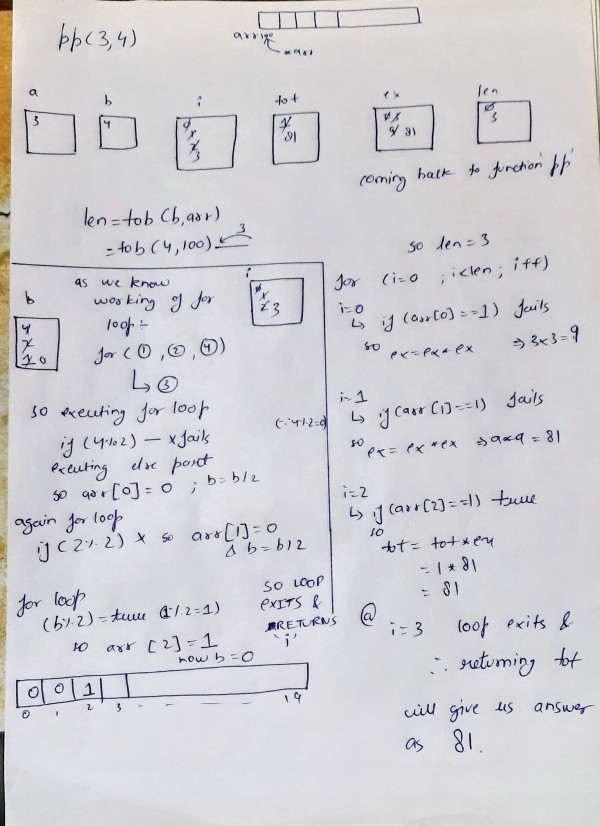 pp(3,4)
arr
*arr
a
b
i
tot
ex
len
3
4
0
1
2
3
1
81
0 3
9 81
0
3
coming back to function 'pp'
len = tob (b, arr)
= tob (4, 100)
3
as we know
working of for
loop :-
for ( ①, ②, ④ )
↳ ③
b
4
2
1 0
i
0
1
2 3
so executing for loop
if (4%2) — x fails
(∵ 4%2=0)
executing else part
so arr[0] = 0 ; b = b/2
again for loop
if (2%2) x so arr[1] = 0
& b = b/2
for loop
(b%2) = true (1%2=1)
so arr [2] = 1
now b = 0
SO LOOP
EXITS &
RETURNS
'i'
0 0 1
0 1 2 3 - - - - 19
so len = 3
for (i=0 ; i<len ; i++)
i=0
↳ if (arr[0]==1) fails
so ex = ex * ex ⇒ 3x3 = 9
i=1
↳ if (arr[1]==1) fails
so ex = ex * ex ⇒ 9x9 = 81
i=2
↳ if (arr[2]==1) true
so
tot = tot * ex
= 1 * 81
= 81
@ i=3 loop exits &
∴ returning tot
will give us answer
as 81.